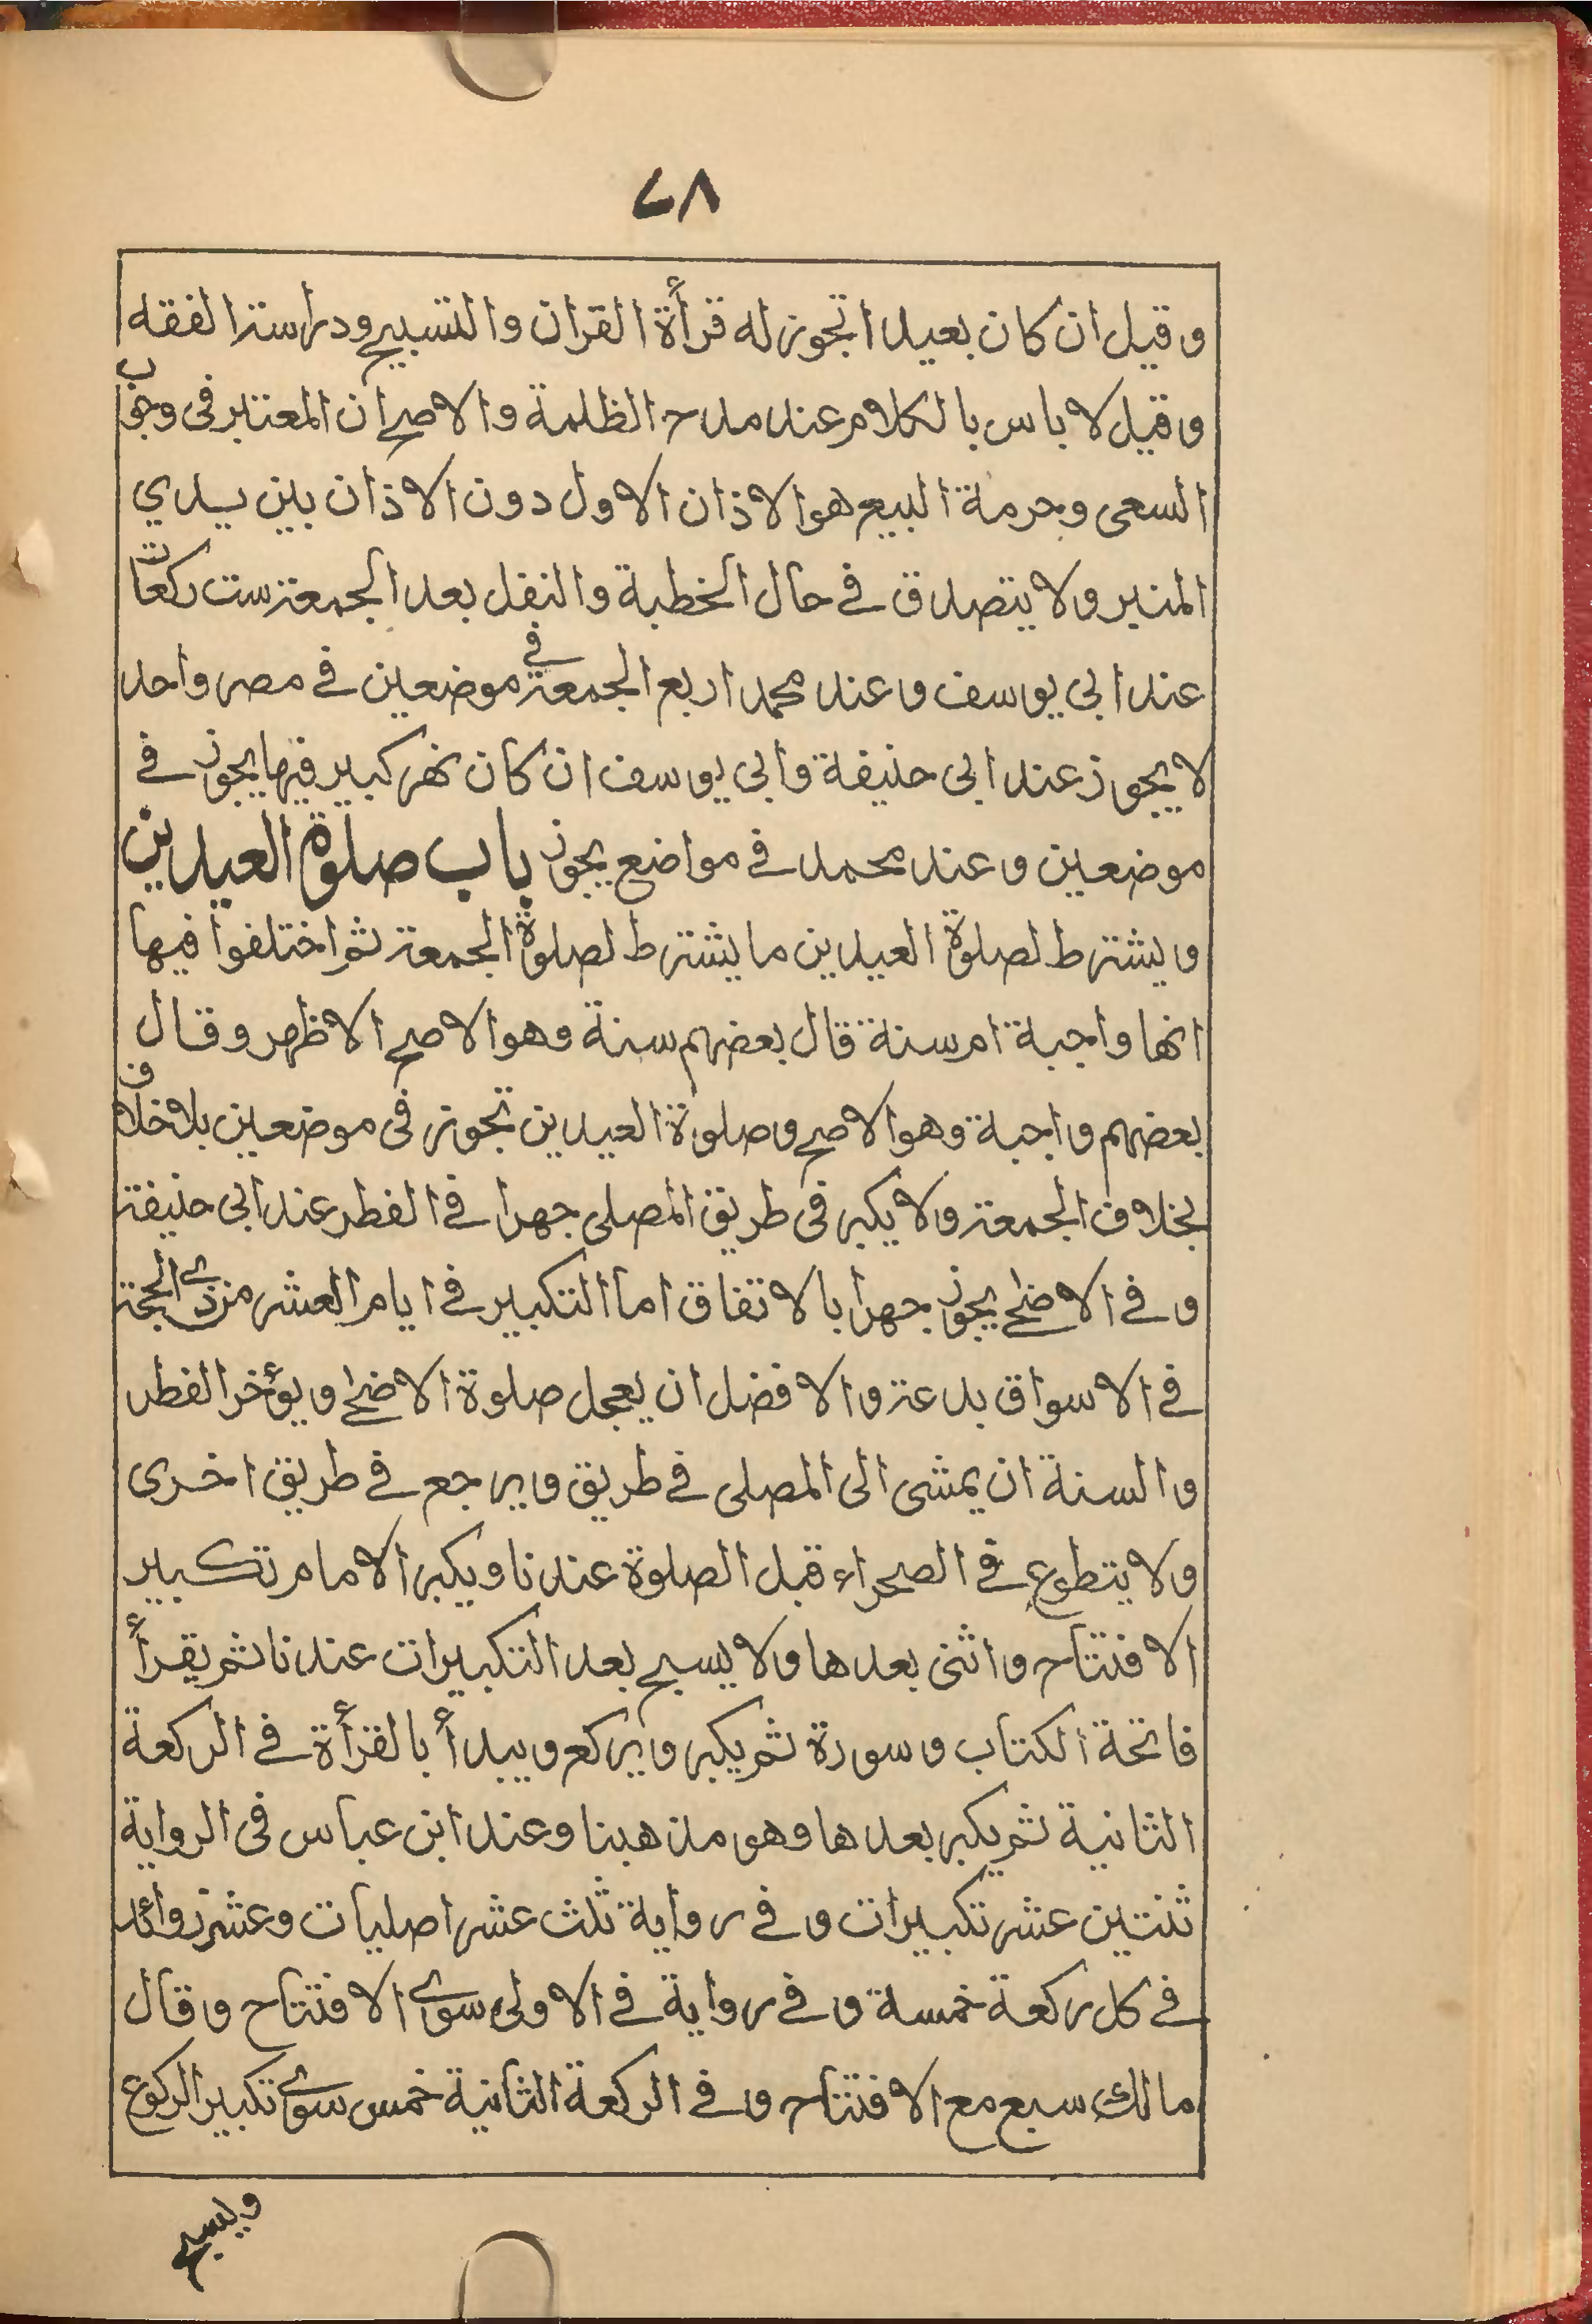 ٧٨
وقيل ان كان بعيدا تجوز له قرأة القران والتسبيح ودراسة الفقه
وقيل لا باس بالكلام عند مدح الظلمة والاصح ان المعتبر فى وجوب
السعى وحرمة البيع هو الاذان الاول دون الاذان بين يدي
المنبر ولا يتصدق في حال الخطبة والنفل بعد الجمعة ست ركعات
عند ابي يوسف وعند محمد اربع الجمعة في موضعين في مصر واحد
لا يجوز عند ابي حنيفة وابي يوسف ان كان نهر كبير فيها يجوز في
موضعين وعند محمد في مواضع يجوز باب صلوة العيدين
ويشترط لصلوة العيدين ما يشترط لصلوة الجمعة ثم اختلفوا فيها
انها واجبة ام سنة قال بعضهم سنة وهو الاصح الاظهر وقال
بعضهم واجبة وهو الاصح وصلوة العيدين تجوز فى موضعين بلا خلاف
بخلاف الجمعة ولا يكبر فى طريق المصلى جهرا في الفطر عند ابى حنيفة
وفي الاضحى يجوز جهرا بالاتفاق اما التكبير في ايام العشر من ذي الحجة
في الاسواق بدعة والافضل ان يعجل صلوة الاضحى ويؤخر الفطر
والسنة ان يمشى الى المصلى في طريق ويرجع في طريق اخرى
ولا يتطوع في الصحراء قبل الصلوة عندنا ويكبر الامام تكبير
الافتتاح واثنى بعدها ولا يسبح بعد التكبيرات عندنا ثم يقرأ
فاتحة الكتاب وسورة ثم يكبر ويركع ويبدأ بالقرأة في الركعة
الثانية ثم يكبر بعدها وهو مذهبنا وعند ابن عباس فى الرواية
ثنتين عشر تكبيرات وفي رواية ثلث عشر اصليات وعشر زوائد
في كل ركعة خمسة وفي رواية في الاولى سوى الافتتاح وقال
مالك سبع مع الافتتاح وفي الركعة الثانية خمس سوى تكبير الركوع
ويسبح